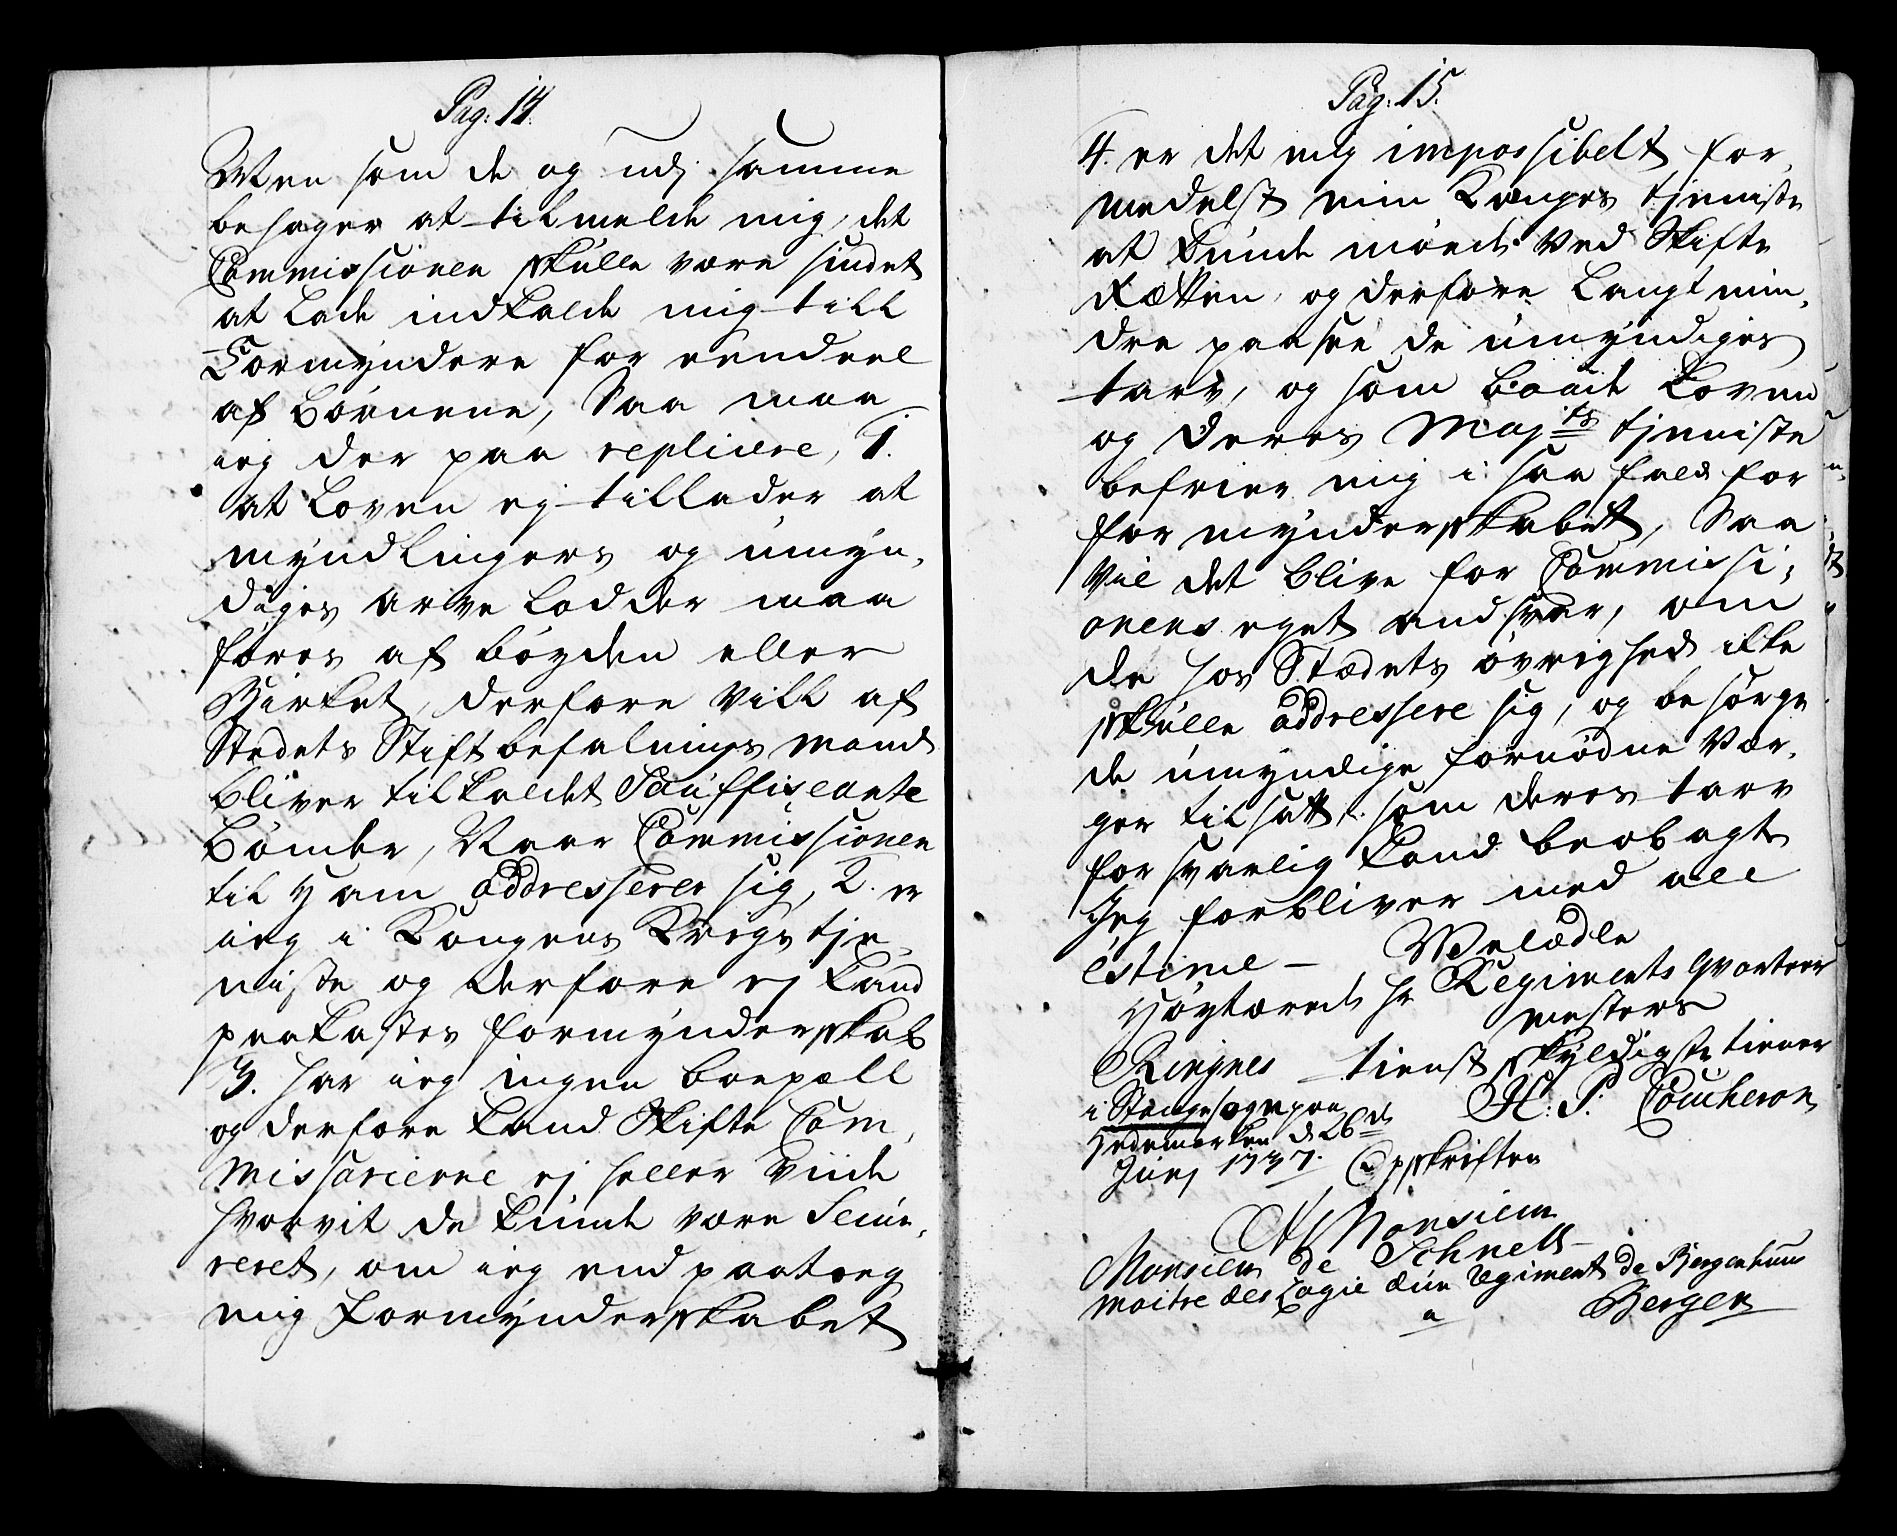 Pag: 14.
Men som de og udj samme
behager at tilmelde mig, det
Commissionen skulle være sindet
at lade indkalde mig till
Formyndere for eendeel
af Børnene, Saa maa
ieg der paa replicere, 1.
at Loven ej tillader at
myndlingers og umyn,
diges arve lodder maa
føres af bøyden eller
Birket, derfore vill af
Stedets Stiftbefalnings mand
bliver tilkaldet Souffisante
Bønder, Naar Commissionen
til ham addresserer sig, 2. er
ieg i Kongens Krigs tje,
niste og derfore ej kand
paakastes formynderskab
3. har ieg ingen boepæll
og derfore kand Skifte Com,
missarierne ej heller viide
hvorvit de kunde være Secu,
reret, om ieg end paatoeg
mig Formynderskabet
Pag: 15.
4. er det mig impossibelt for,
medelst min Konges tjeniste
at kunde møede ved Skifte
Rætten, og derfore langt min,
dre paasee de umyndiges
tarv, og som baade Loven
og Deres Maj:ts tjeniste
befrier mig i saa fald for
formynderskabet, Saa
vil det blive for Commissi,
onens eget andsvar, om
de hos Stædets øvrighed ikke
skulle addressere sig, og besørge
de umyndige fornødne Vær,
ger tilsatt, som deres tarv
forsvarlig kand beobagt
Jeg forbliver med all
estime – Velædle
Høytærede hr Regiments Qvarteer
mesters
Ringnes tienst skyldigste tiener
i Stange sogn paa H: P: Coucheron
Hedemarken d 26de
Junj 1737. Opskriften
A Monsieur
Monsieur de Schnell
Maitre des Logie dun regiment de Bergenhuus
a Bergen